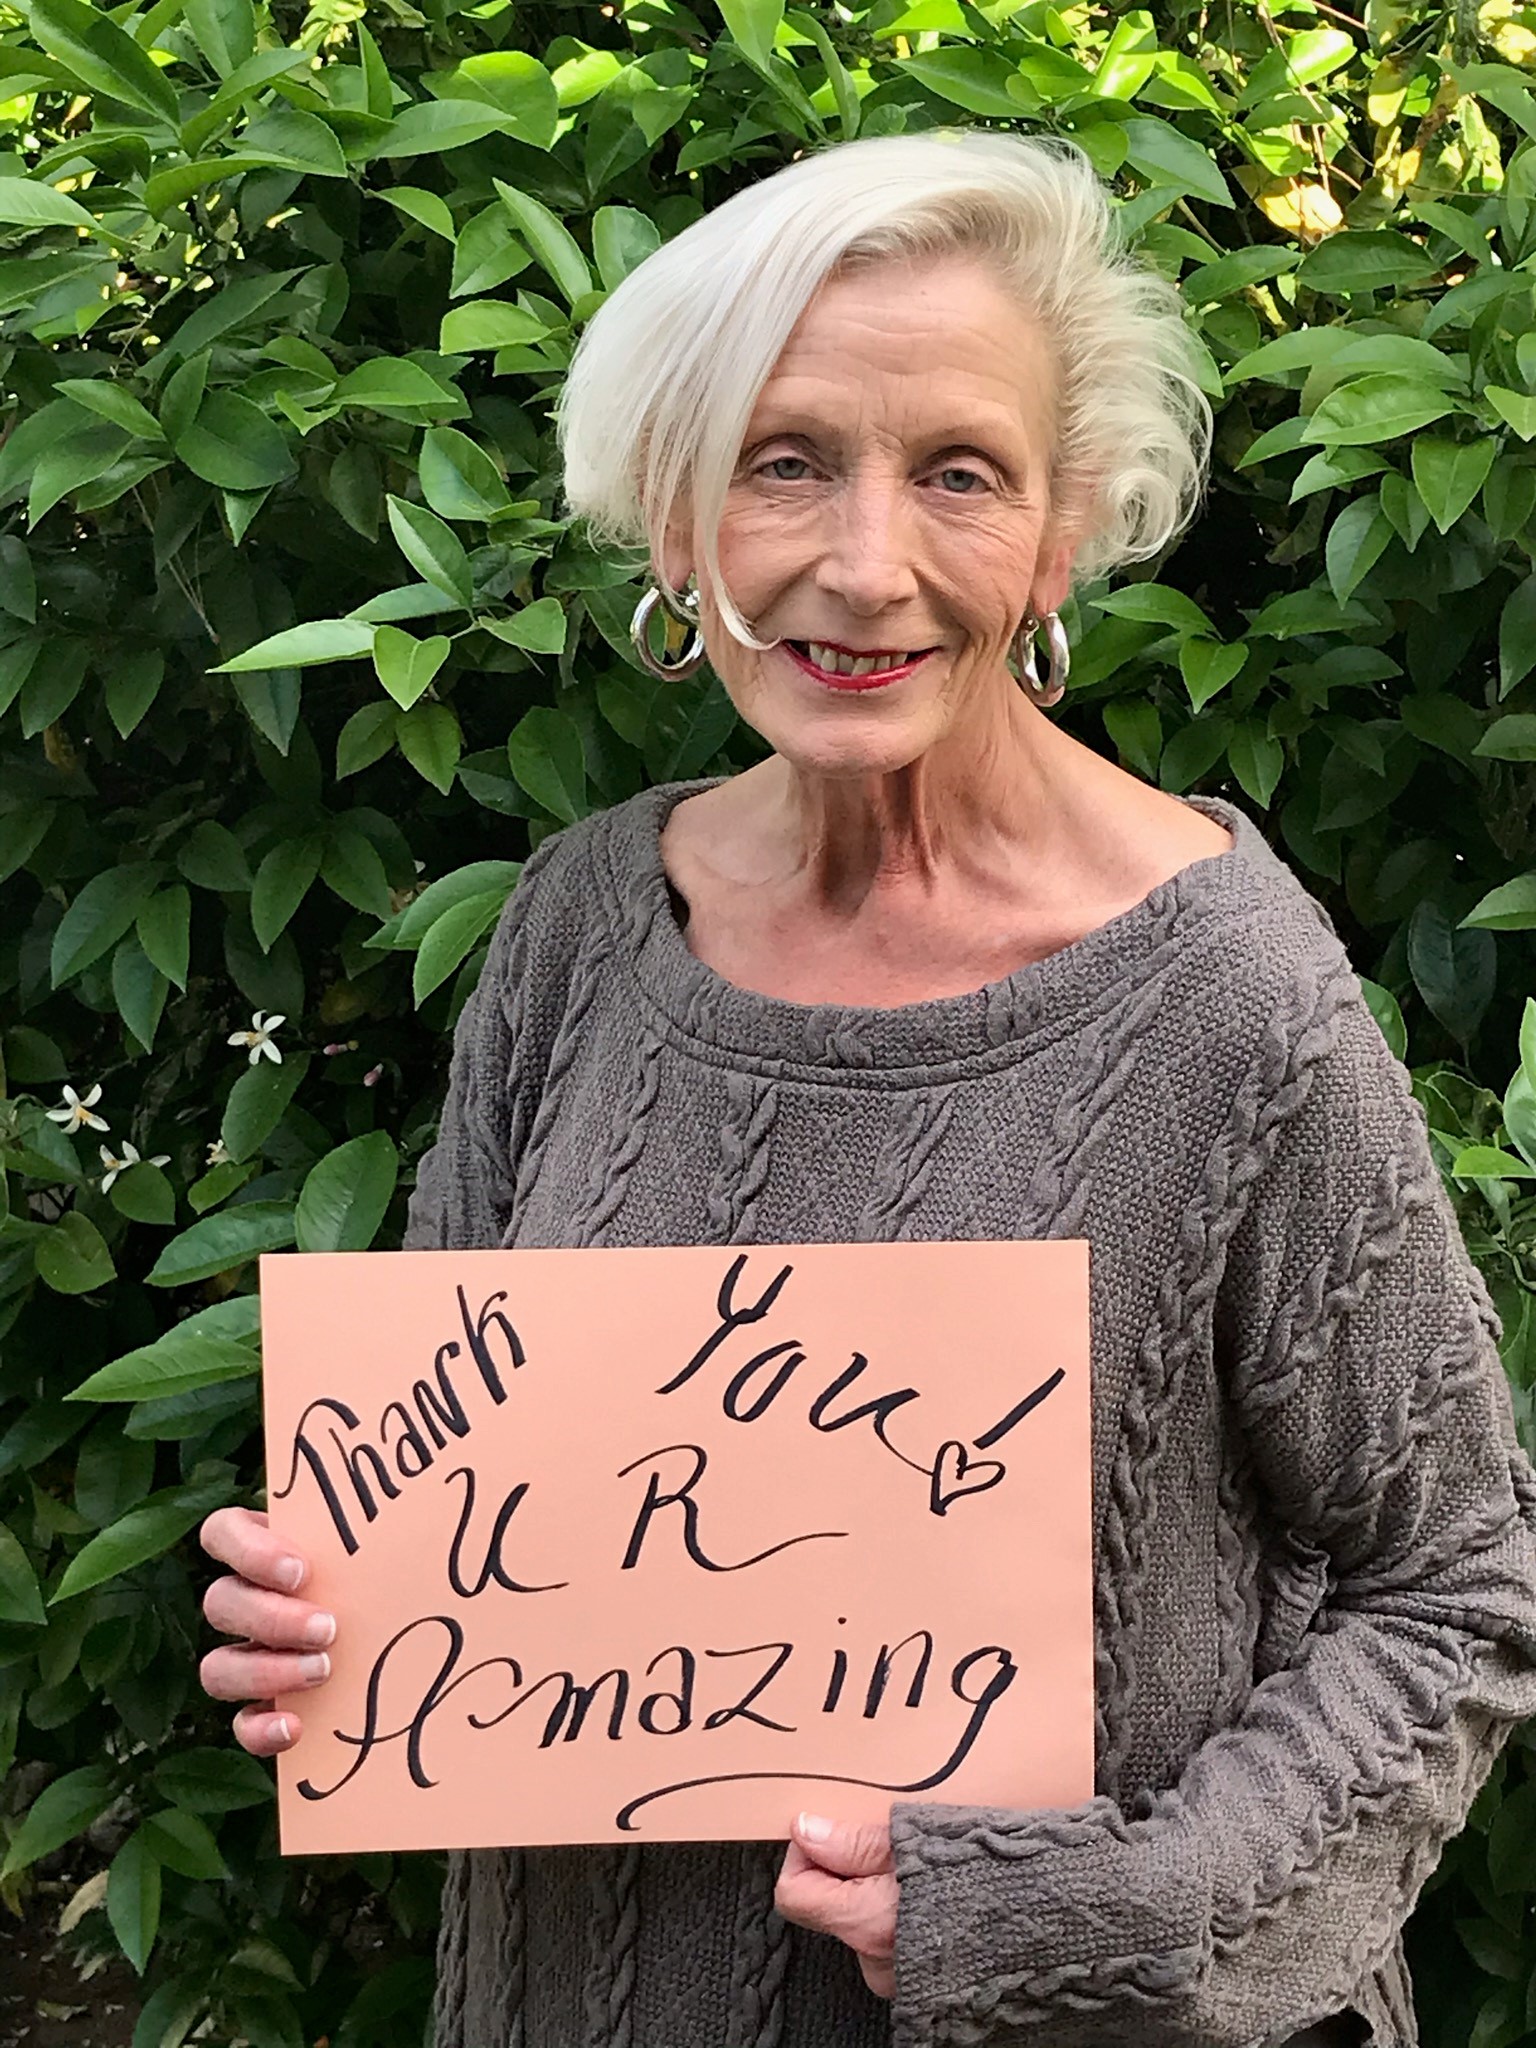 Thank You!
U R
Amazing